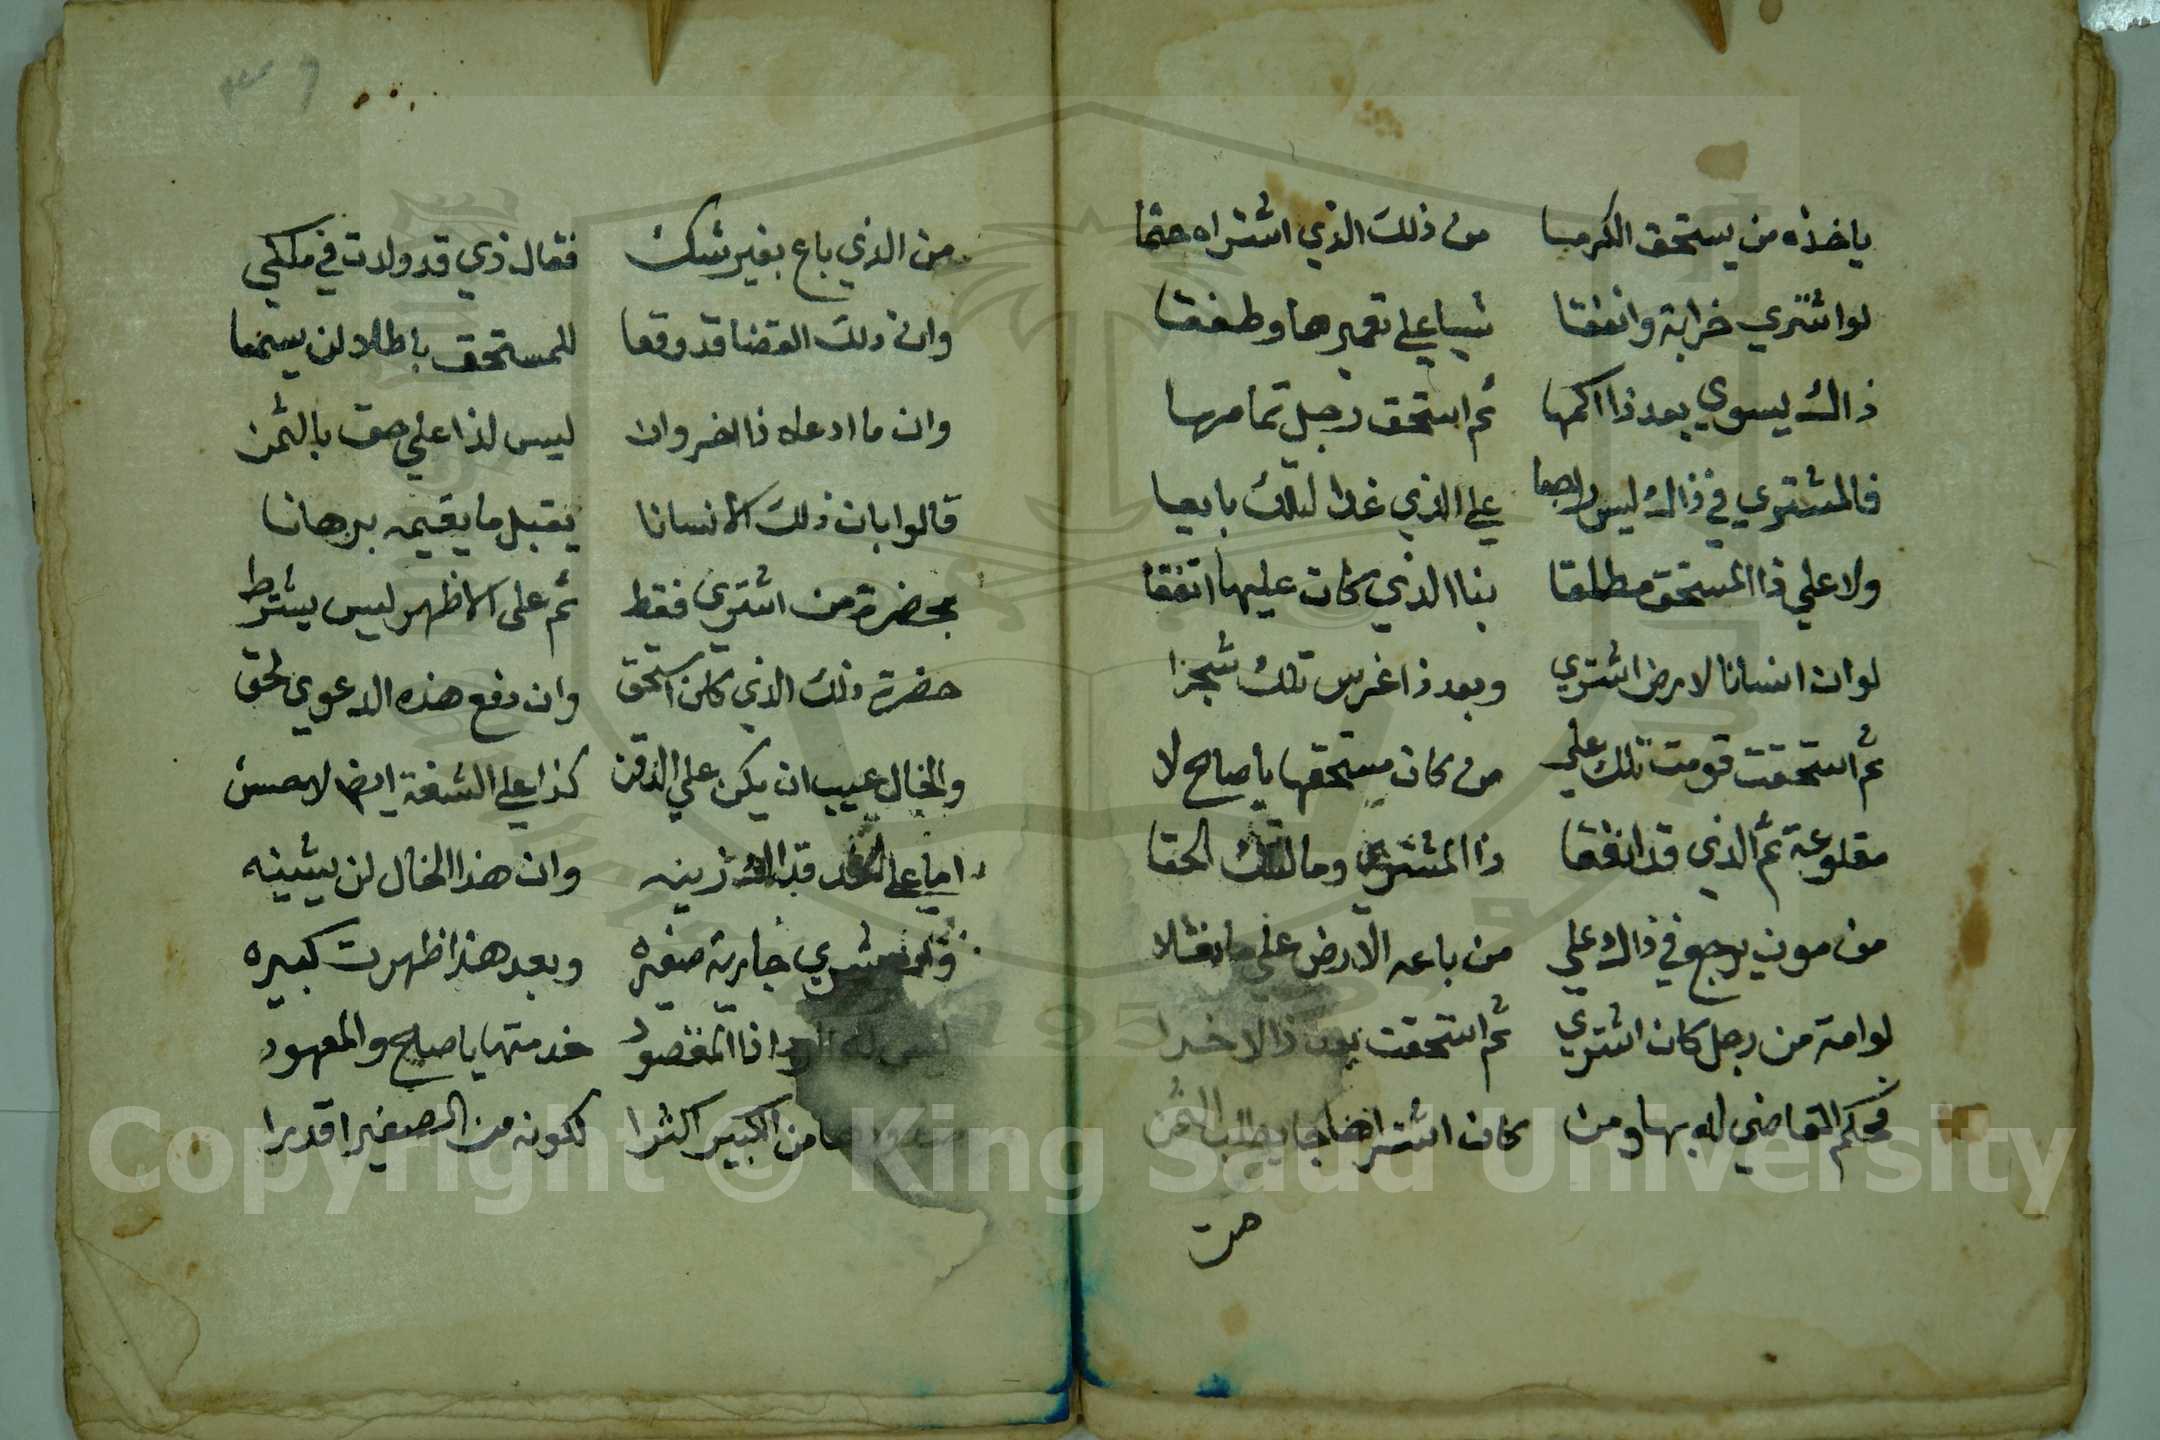 ياخذه من يستحق الكرما من ذلك الذي اشتراه حتما
لو اشتري خرابة وانفقا شيا علي تعميرها وطفقا
ذاك يسوي بعد ذا اكمها ثم استحق رجل تمامها
فالمشتري في ذاك ليس راجعا علي الذي غدا لتلك بايعا
ولا علي ذا المستحق مطلقا بنا الذي كان عليها اتفقا
لو ان انسانا لارض اشتري وبعد ذا غرس تلك شجرا
ثم استحقت قومت تلك علي من كان مستحقها يا صاح لا
مقلوعة ثم الذي قد انفقا ذا المشتري وما لتلك الحقا
من مون يرجع في ذاك علي من باعه الارض علي ما نقلا
لو امة من رجل كان اشتري ثم استحقت بعد ذا لاخرا
فحكم القاضي له بها ومن كان اشتراها جا يطلب الثمن
من
من الذي باع بغير شك فقال ذي قد ولدت في ملكي
وان ذلك القضا قد وقعا للمستحق باطلا لن يسمعا
وان ما ادعاه ذا الخروان ليس لذا علي حق بالثمن
قالوا بان ذلك الانسانا يقبل ما يقيمه برهانا
بحضرة من اشتري فقط ثم على الاظهر ليس يشترط
حضرة ذلك الذي كان استحق وان دفع هذه الدعوي لحق
والخال عيب ان يكن علي الذقن كذا علي الشفة ايضا لا حسن
اما علي الخد قد ذاك زينه وان هذا الخال لن يشينه
يشتري جارية صغيره وبعد هذا ظهرت كبيره
ليس له الرد اذا المقصود خدمتها يا صاح والمعهود
من الكبير اكثرا لكونه من الصغير اقدرا
Copyright © King Saud University